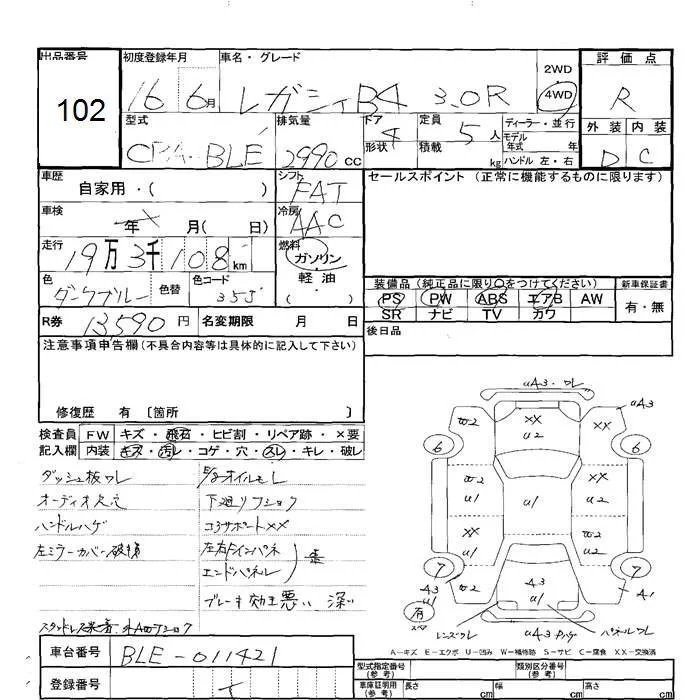 出品番号 初度登録年月 車名・グレード 評価点
102
16 6月 レガシィB4 3.0R 2WD 4WD R
型式 排気量 ドア 定員 ディーラー・並行 外装 内装
CBA-BLE 2990 cc 4 5人 モデル年式 年
形状 積載 kg ハンドル 左・右 D C
車歴 自家用・( ) シフト FAT セールスポイント (正常に機能するものに限ります)
車検 年 X 月( 日) 冷房 AAC
走行 19万3千108km 燃料 ガソリン・軽油・( )
色 ダークブルー 色替 色コード 35J
装備品 (純正品に限り○をつけてください) 新車保証書
PS PW ABS エアB AW 有・無
SR ナビ TV カワ
R券 13,590円 名変期限 月 日 後日品
注意事項申告欄(不具合内容等は具体的に記入して下さい)
修復歴 有 〔箇所 〕
検査員 FW キズ・飛石・ヒビ割・リペア跡・×要
記入欄 内装 キズ・汚レ・コゲ・穴・スレ・キレ・破レ
ダッシュ板ワレ E/gオイルモレ
オーディオ欠穴 下廻リフショク
ハンドルハゲ コアサポートXX
左ミラーカバー破損 左右Fインパネ
エンドパネル
ブレーキ効き悪い 深い
UA3・ワレ
W2 XX U2 UA3
6 6
W2 U1 XX U2
U1
XX U1 W2 U2
7 7
W2 A3 U1 A1
有 スペア
レンズワレ UA3 パネルワレ
A-キズ E-エクボ U-凹み W-補修跡 S-サビ C-腐食 XX-交換済
車台番号 BLE-011421
型式指定番号(参考) 類別区分番号(参考)
登録番号 X
車庫証明用(参考) 長さ cm 幅 cm 高さ cm